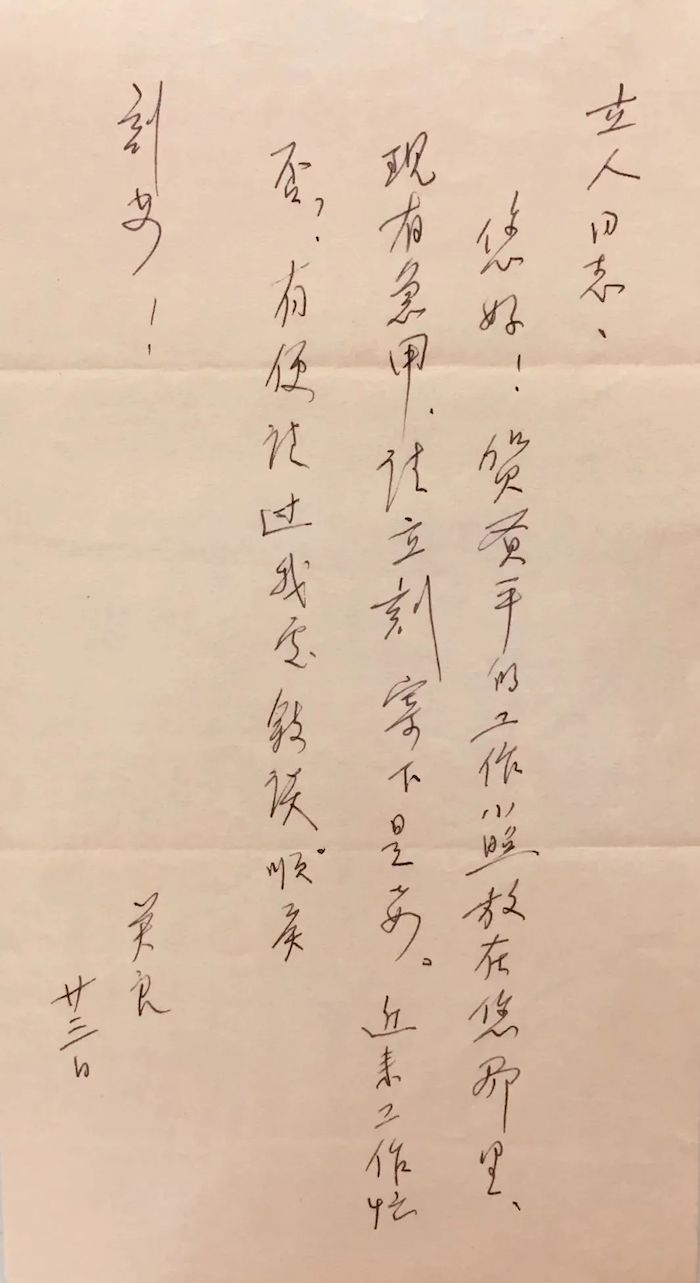 立人同志、
您好！贺天健的工作小照放在您那里、
现有急用、请立刻寄下是要。近来工作忙
否？有便请过我处叙谈。顺矣
刻安！
英良
廿三日